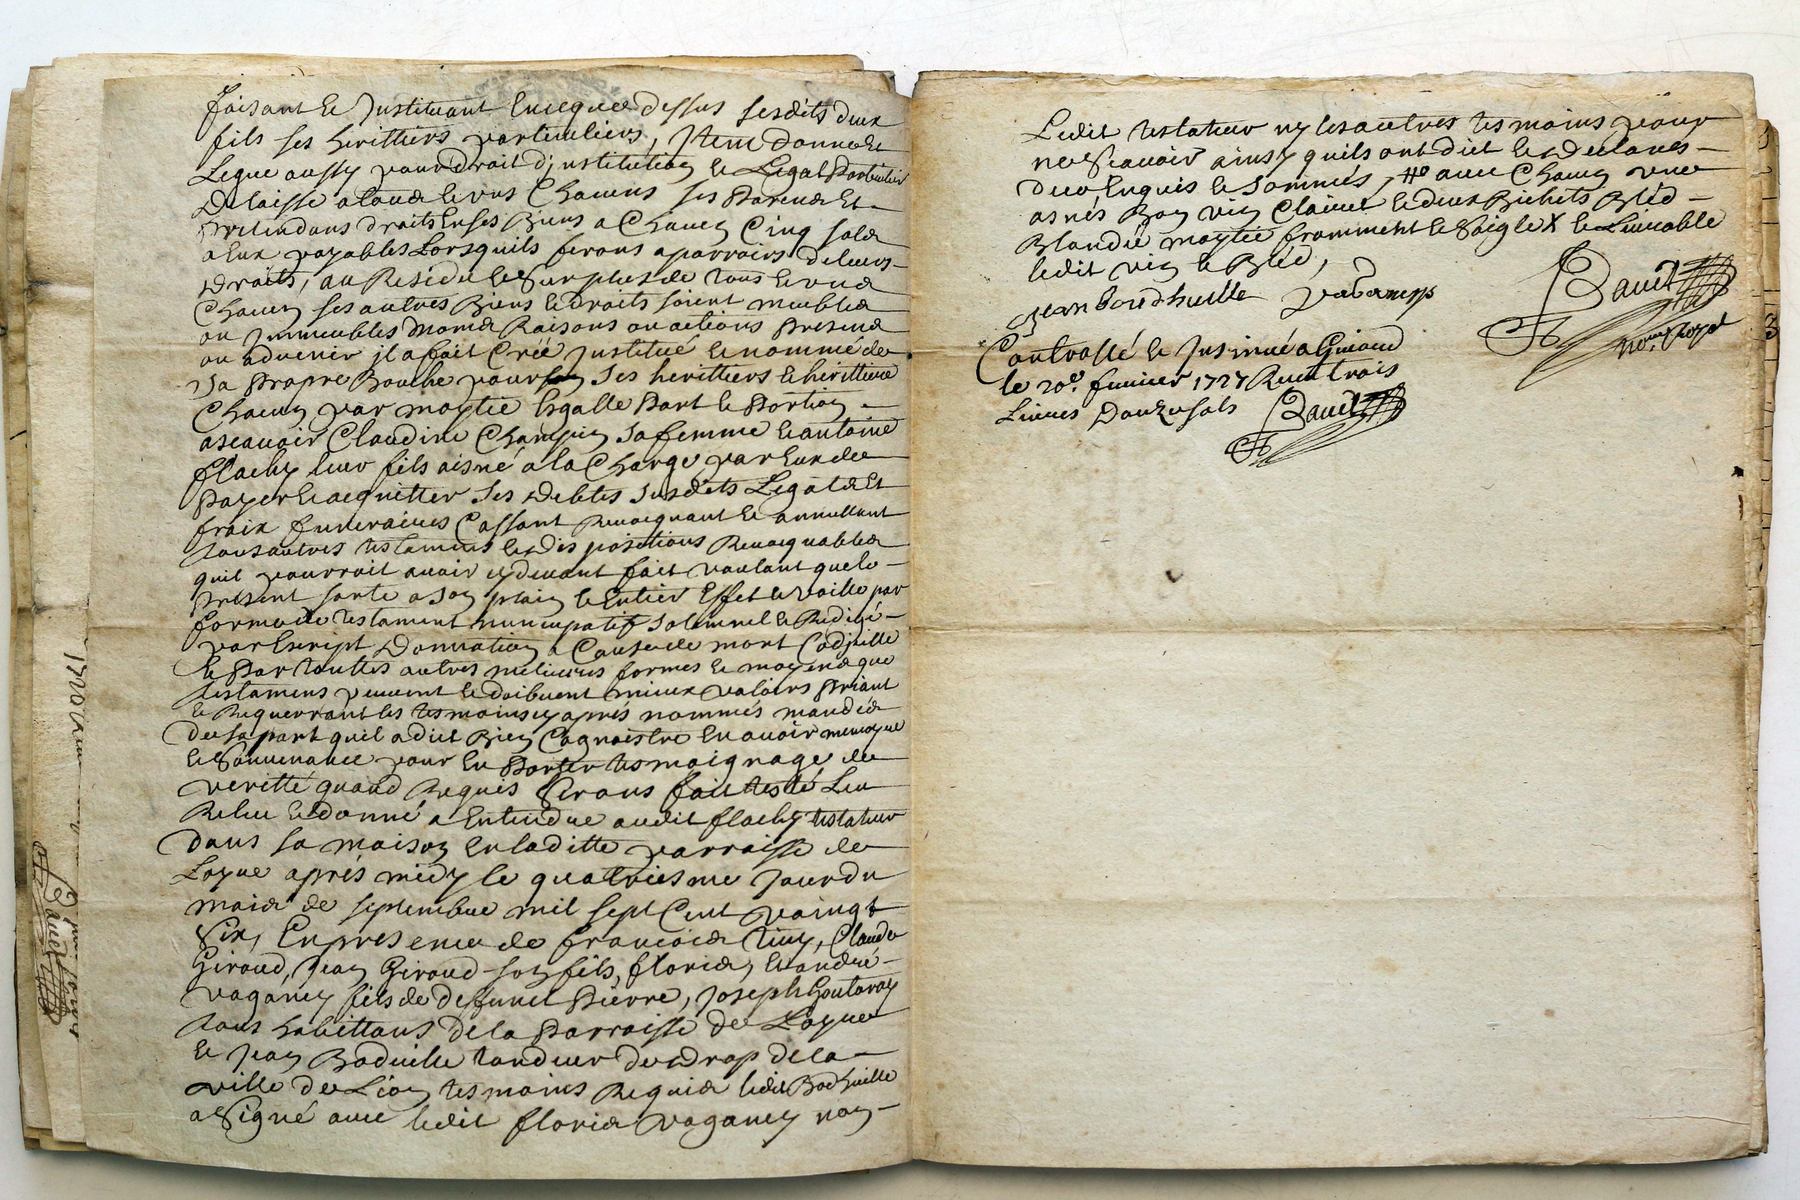 faisant et Instituant en ce que dessus sesdits deux
fils ses heritiers particuliers, Item donne et
Legue aussy pour droit d'institution et Legat Particulier
Delaisse a tous et uns Chacuns ses Parens et
pretendans droits en ses Biens a Chacun Cinq sols
a eux payables Lorsquils feront aparroirs de leurs
droits, au Residu et Surplus de tous et uns
Chacun ses autres Biens et droits soient meubles
ou Immeubles Noms Raisons ou actions Presens
ou advenir il a fait Créé Institué et nommé de
sa Propre Bouche pour ses herittiers et herittiere
Chacun par moytié Esgalle Part et Portion
ascavoir Claudine Champin sa femme et antoine
flachy leur fils aisné a la Charge par Eux de
Payer et acquitter ses debtes susdits Legats et
fraix funeraires Cassant Revocquant et annullant
tous autres testamens et dispositions Revocquables
quil pourroit avoir cy devant fait voulant que le
present sorte a son plain et Entier Effet et vaille par
forme de testament nuncupatif solemnel et Redigé
par Escript Donnation a Cause de mort Codicille
et Par touttes autres melieures formes et moyens que
testamens peuvent et doibvent mieux valoirs Priant
et Requerrant les tesmoins cy aprés nommés mandés
de sa part quil a dict Bien Cognoistre En avoir memoyre
et Souvenance pour En Porter tesmoignage de
veritté quand Requis Seront fait testé Leu
Releu et donné a Entendre audit flachy testateur
dans sa maison En laditte parroisse de
Loyre aprés midy le quatriesme Jour du
mois de septembre mil sept Cent vaingt
Six, En presence de francois , Claude
Giroud, Jean Giroud son fils, floris, et andré
vaganey fils de deffunct Pierre, Joseph Goutaray
tous habittans de la Parroisse de Loyre
et Jean Bodhuille tondeur de drap de la
ville de Lion tesmoins Requis ledit Bodhuille
a Signé avec ledit floris vaganey non
Ledit testateur ny les autres tesmoins pour
ne Scavoir ainsy quils ont dict et Declares
de ce Enquis et Sommés, avec Chacun une
asnés Bon vin Clairet et deux Bichets Bled
Blondée moytié fromment et Soigle X et Livrable
ledit vin et Bled,
Jean bodhuille
Bavet
no.re Royal
Controllé et Insinué a Givord
le 20.e fevrier 1727 Receu trois
Livres Douze sols Bavet